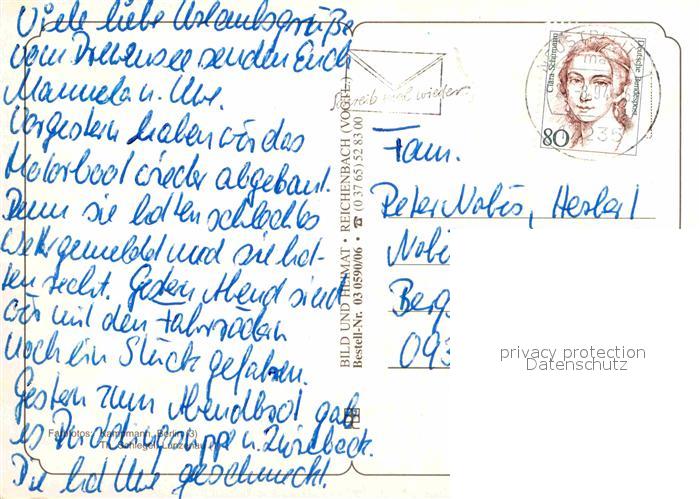 Viele liebe Urlaubsgrüße
vom Dollensee senden Euch
Manuela u. Uwe.
Vorgestern haben wir das
Motorboot wieder abgebaut.
Denn sie hatten schlechtes
Wetter gemeldet und sie hat-
ten recht. Gestern Abend sind
wir mit den Fahrrädern
noch ein Stück gefahren.
Gestern zum Abendbrot gab
es Puddingsuppe u. Zwieback.
Die hat Uwe geschmeckt.
Farbfotos: Kampmann, Berlin (3)
Th. Schlegel, Lunzenau
BILD UND HEIMAT • REICHENBACH (VOGTL.)
Bestell-Nr. 03 0590/06 • ☎ (0 37 65) 52 83 00
Schreib mal wieder
Clara Schumann
Deutsche Bundespost
80
Fam.
Peter Nobis, Herbert
Nobi
Berg
093
privacy protection
Datenschutz